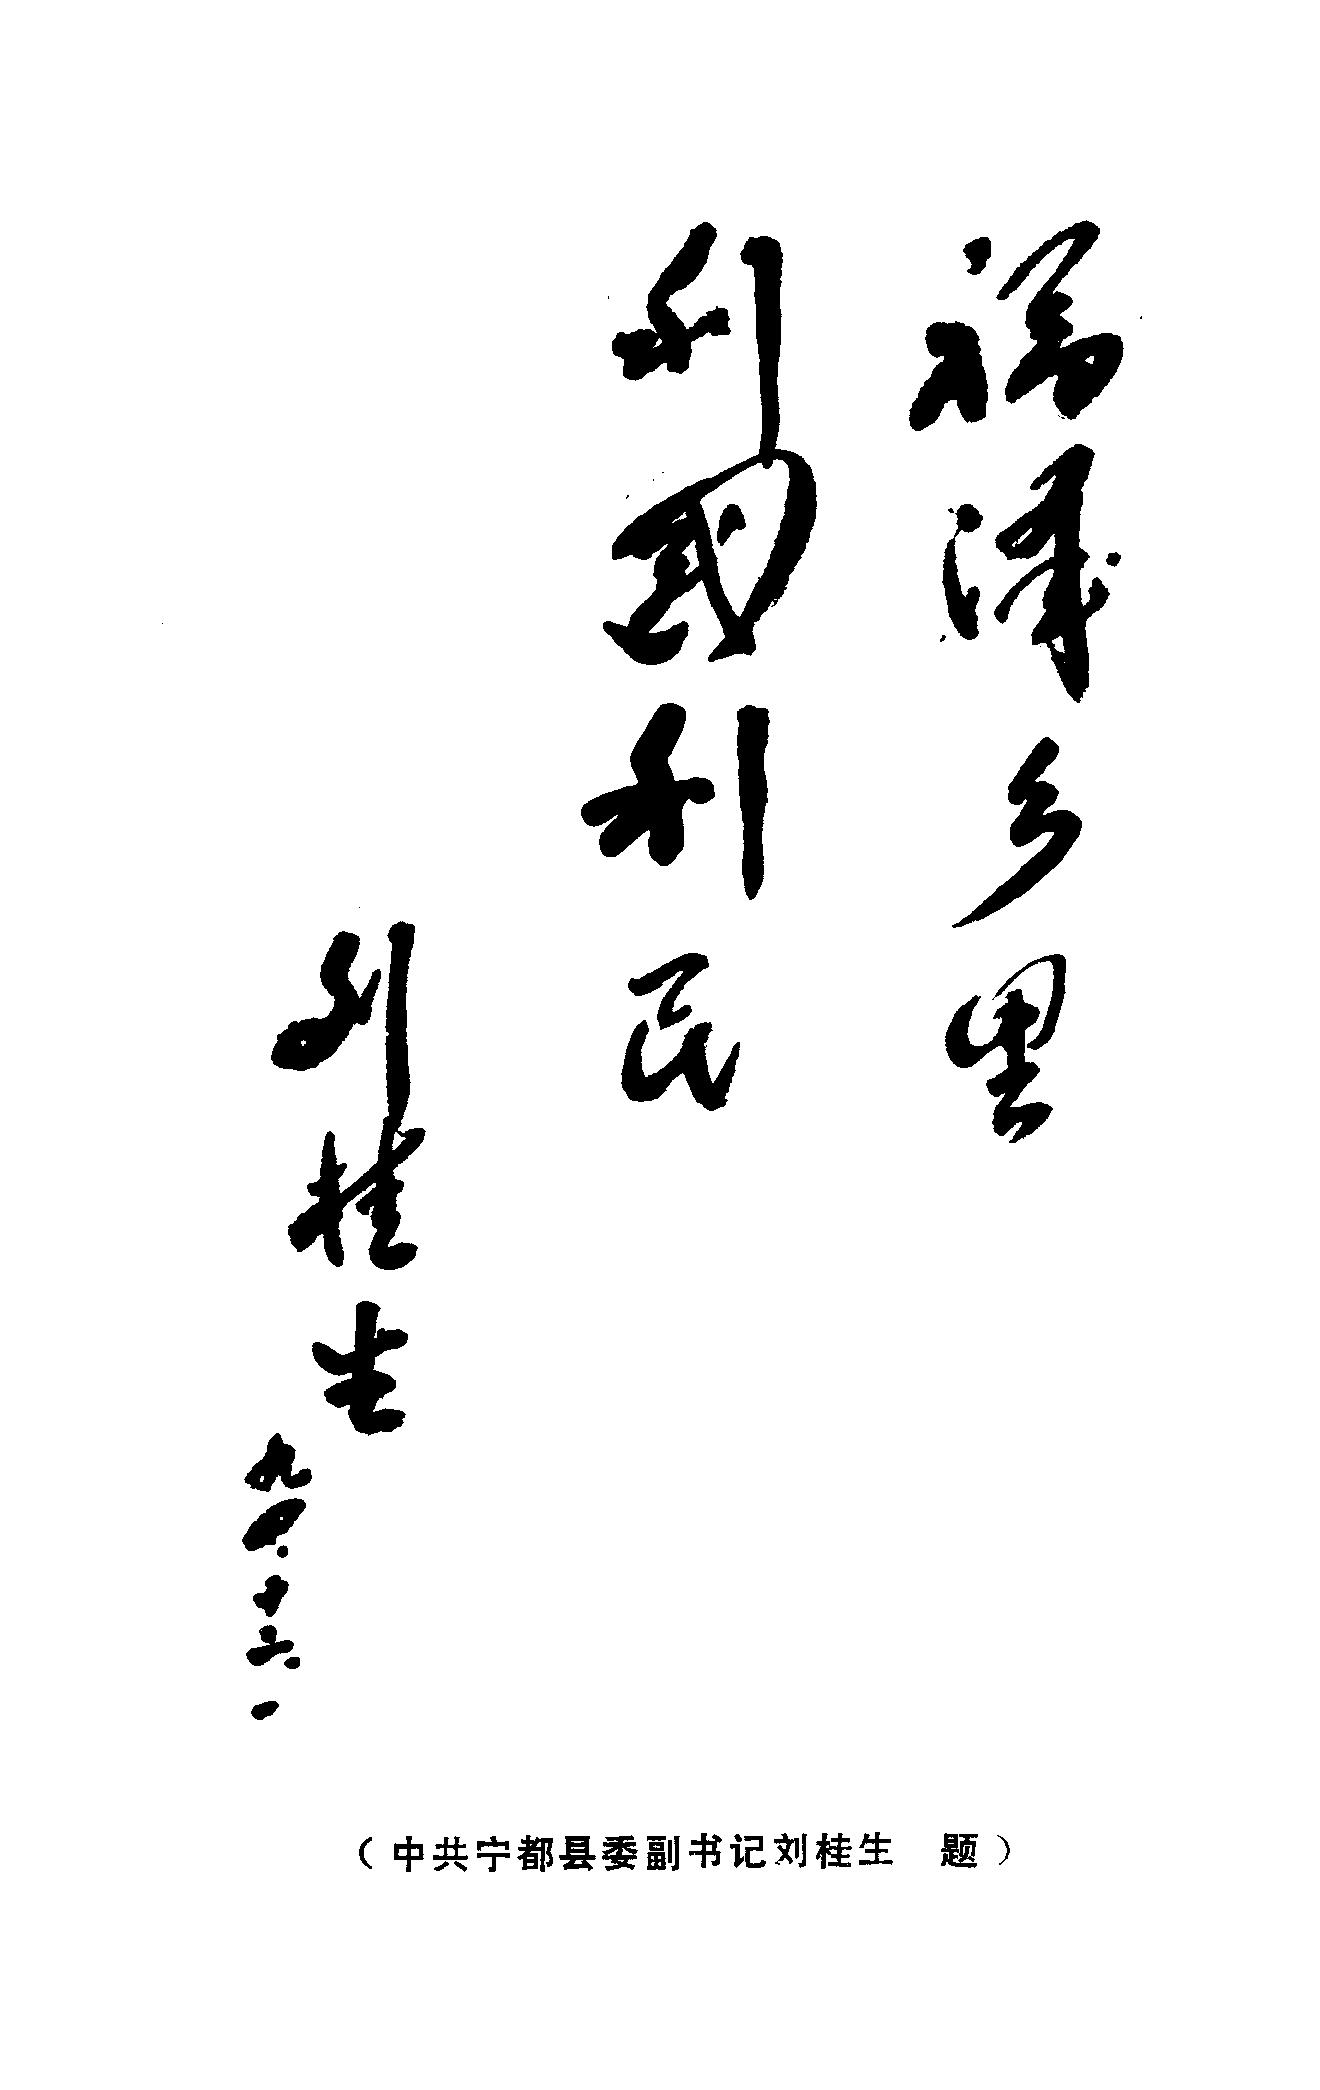 福泽乡里
利國利民
刘桂生
九〇.十六.一
（中共宁都县委副书记刘桂生　题）